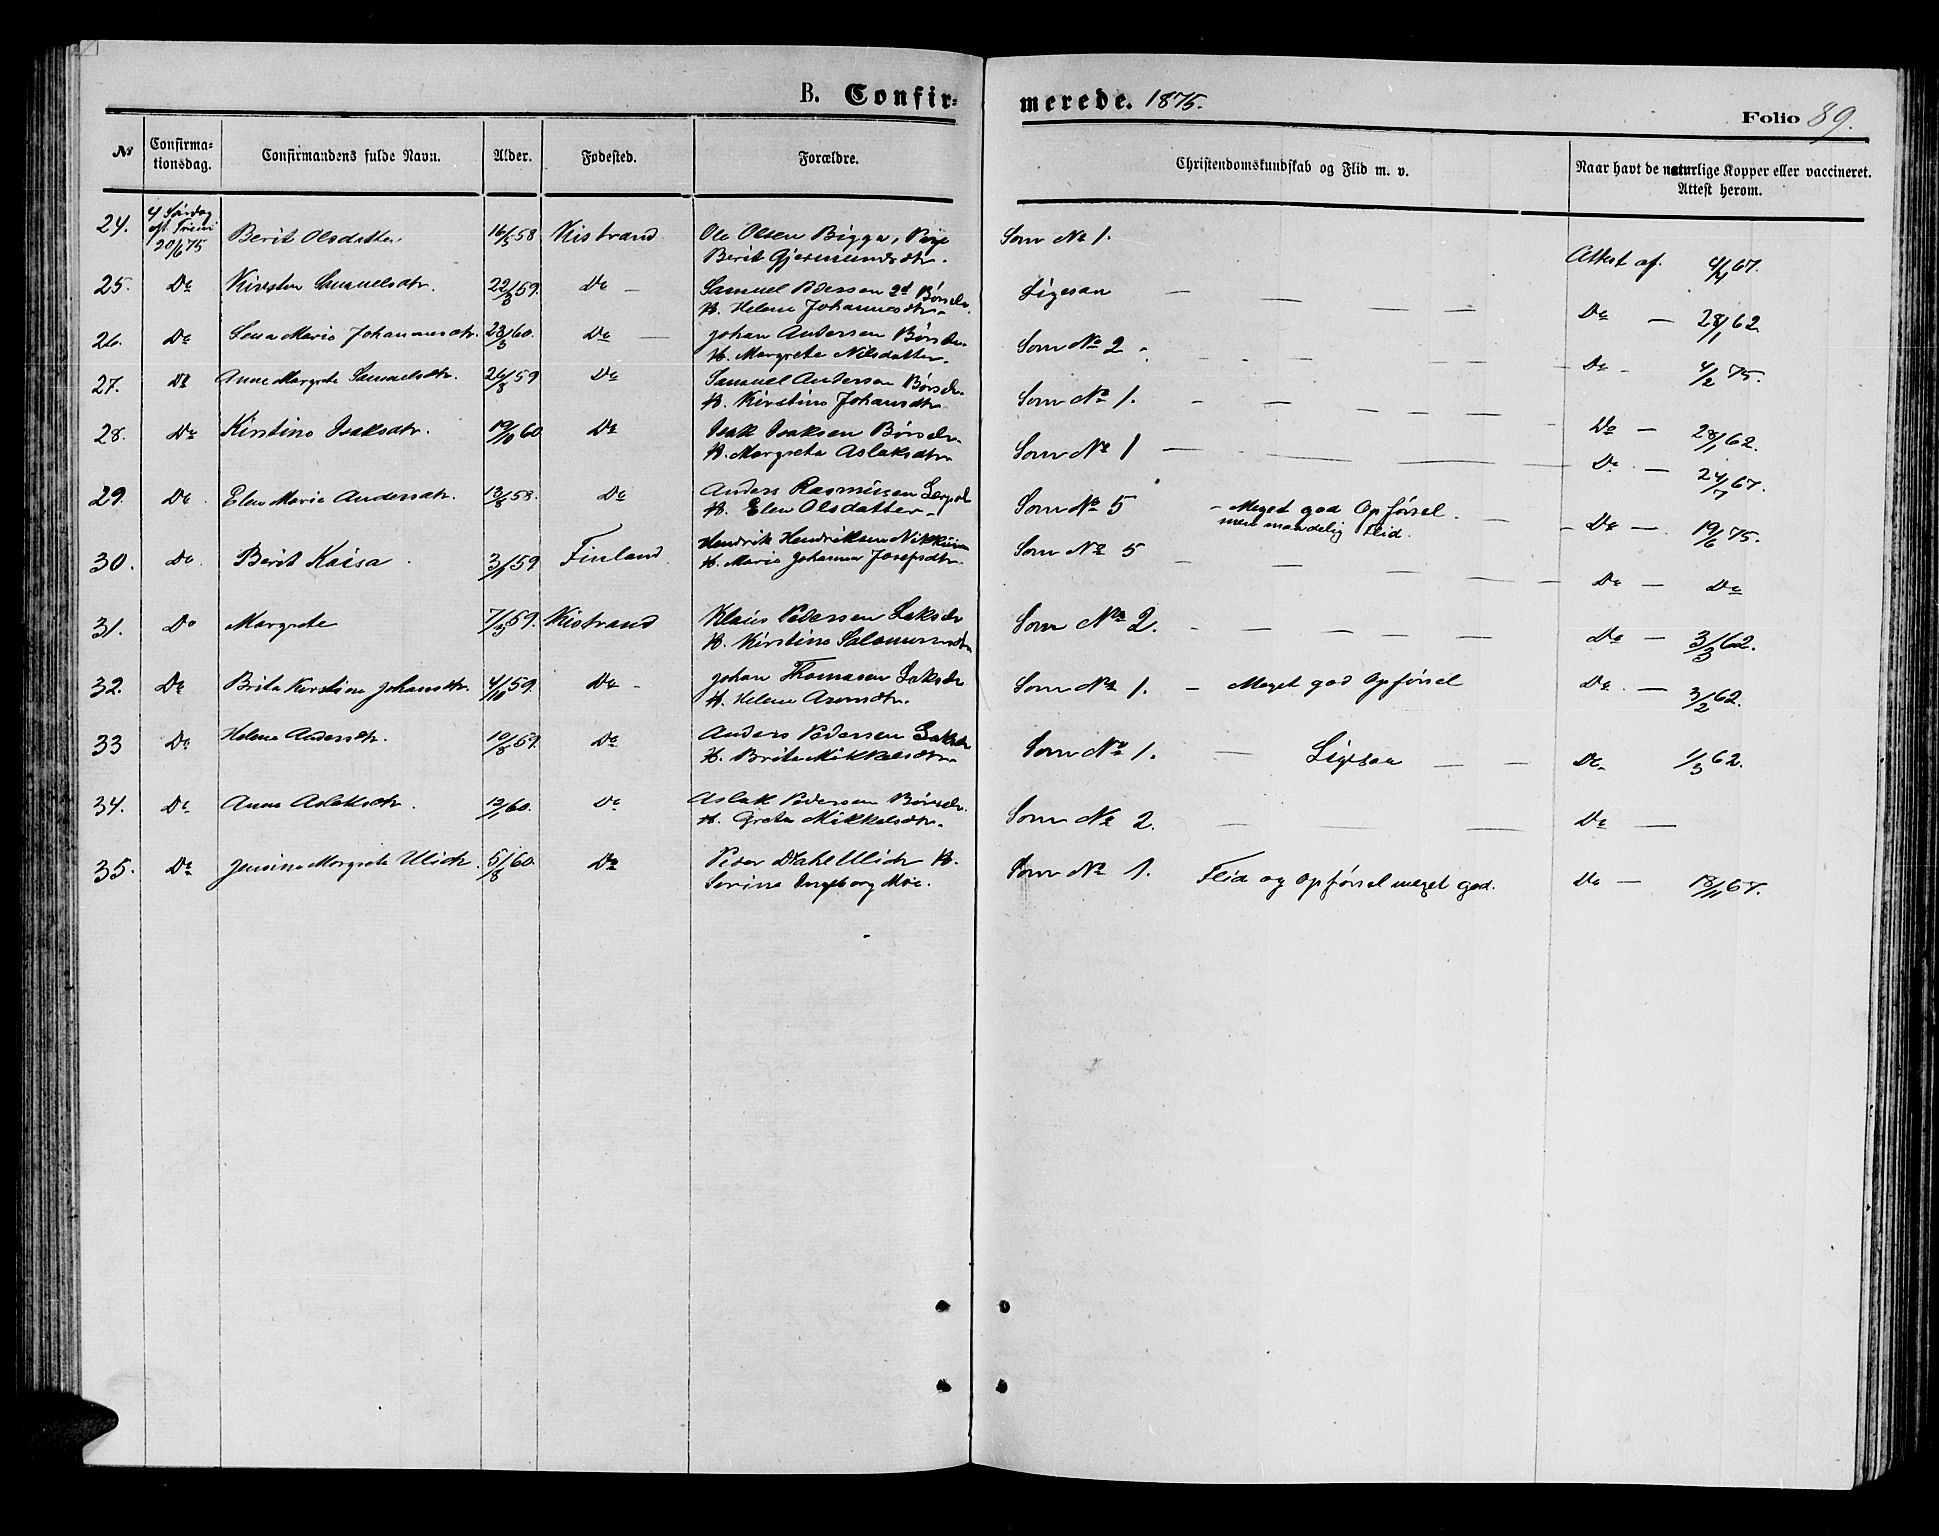 B. Confirmerede. 1875.
Folio 89.
No Confirmationsdag. Confirmandens fulde Navn. Alder. Fødested. Forældre. Christendomskundskab og Flid m. v. Naar havt de naturlige Kopper eller vaccineret. Attest herom.
24. 4 Søndag eft. Trini 20/6 75 Berit Olsdatter 16/5 58 Kistrand Ole Olsen Bigga, Som No 1. Attest af. 4/4 67.
Berit Gjermundsdtr.
25. Do Kirsten Samuelsdtr. 22/3 59. Do — Samuel Pedersen 2d Børselv Ligesaa — — — — — Do — 28/1 62.
H. Helene Johannesdtr.
26. Do Lena Marie Johannesdtr. 23/3 60. Do — Johan Andersen Børselv Som No 2 - — — — — Do - 4/2 75.
H. Margrete Nilsdatter.
27. Do Anne Margrete Samuelsdtr. 26/8 59 Do Samuel Andersen Børselv Som No 1. — — — — — Do — 28/1 62.
H. Kirstine Johansdtr
28. Do Kirstine Isaksdtr. 19/10 60 Do Isak Isaksen Børselv Som No 1 — — — — — Do — 24/7 67.
H. Margreta Aslaksdtr
29. Do Elen Marie Andersdtr. 13/8 58. Do Anders Rasmussen Som No 5 - Meget god Opførsel. — Do — 19/6 75.
H. Elen Olsdatter mere maadelig Flid.
30. Do Berit Kaisa 3/1 59 Finland Hendrik Hendriksen Som No 5 — — — — — Do — Do
H. Marie Johanna Josefsdtr.
31. Do Margrete 7/3 59. Kistrand Klaus Pedersen Lakselv Som No 2. — — — — — Do — 3/3 62.
H. Kirstine Salomonsdtr
32. Do Brita Kirstine Johansdtr. 4/10 59. Do - Johan Thomasen Lakselv Som No 1. — Meget god Opførsel Do — 3/2 62.
H. Helene Aronsdtr.
33 Do Helene Andersdtr. 10/8 59. Do Anders Pedersen Lakselv Som No 1. — Ligesaa — — Do - 1/3 62.
H. Brita Mikkelsdtr
34. Do Anna Aslaksdtr. 12/1 60. Do Aslak Pedersen Børselv. Som No 2. — — — Do —
H. Greta Mikkelsdtr.
35. Do Jensine Margrete Ulich. 5/8 60. Do Peder Dahl Ulich H. Som No 1. Flid og Opførsel meget god. Do — 18/11 67.
Sorine Ingeborg Moe.